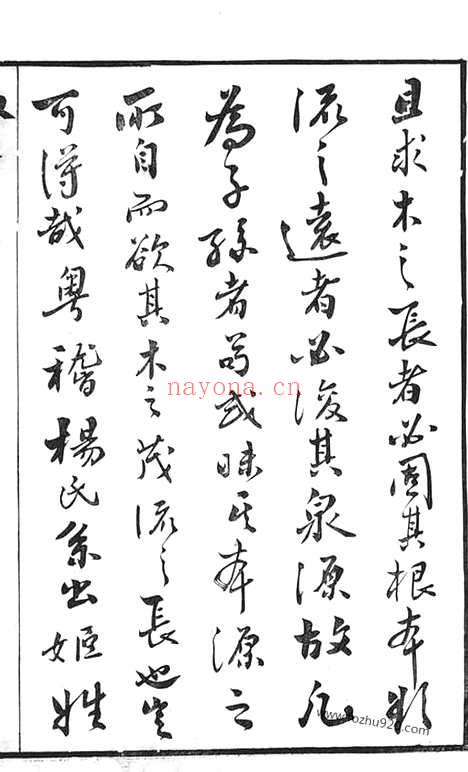 且求木之長者必固其根本欲
流之遠者必浚其泉源故凡
為子孫者苟或昧其本源之
所自而欲其木之茂流之長也豈
可得哉粵稽楊氏系出姬姓
nayona.cn